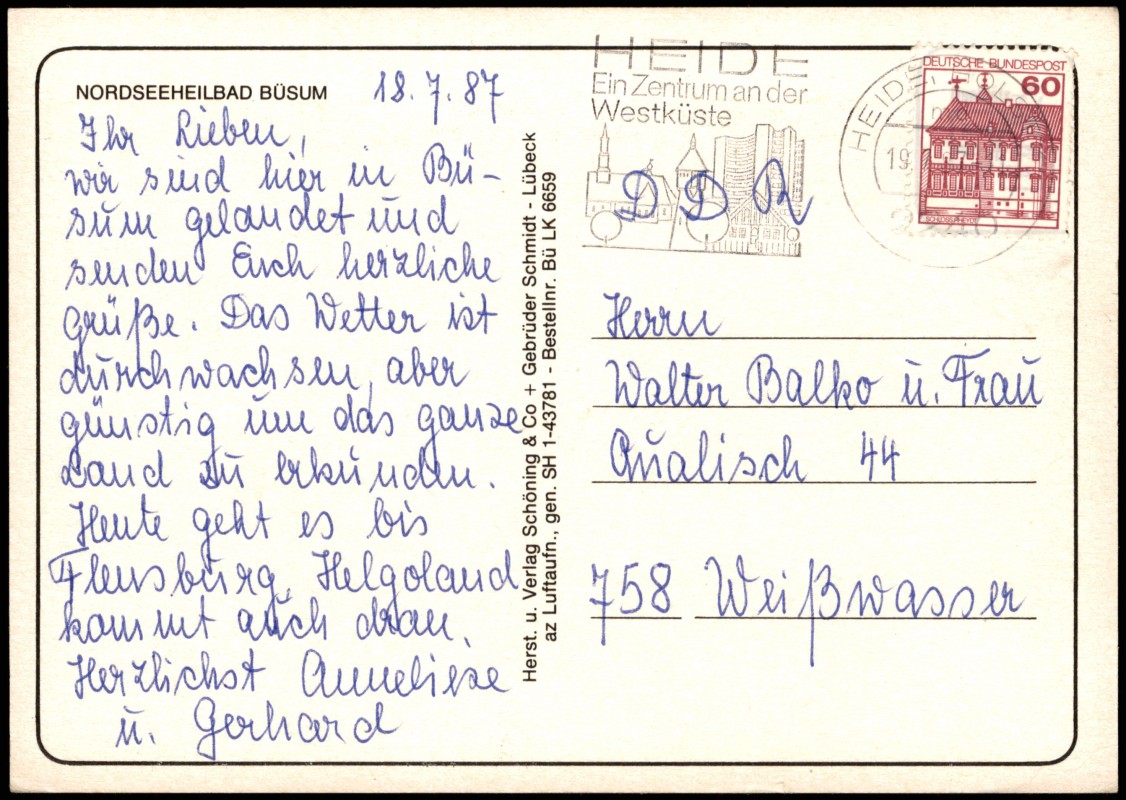 NORDSEEHEILBAD BÜSUM
18.7.87
Ihr Lieben,
wir sind hier in Bü-
sum gelandet und
senden Euch herzliche
Grüße. Das Wetter ist
durchwachsen, aber
günstig um das ganze
Land zu erkunden.
Heute geht es bis
Flensburg, Helgoland
kommt auch dran.
Herzlichst Anneliese
u. Gerhard
Herst. u. Verlag Schöning & Co + Gebrüder Schmidt - Lübeck
az Luftaufn., gen. SH 1-43781 - Bestellnr. Bü LK 6659
HEIDE
Ein Zentrum an der
Westküste
HEIDE
19
DEUTSCHE BUNDESPOST
60
DDR
Herrn
Walter Balko u. Frau
Qualisch 44
758 Weißwasser